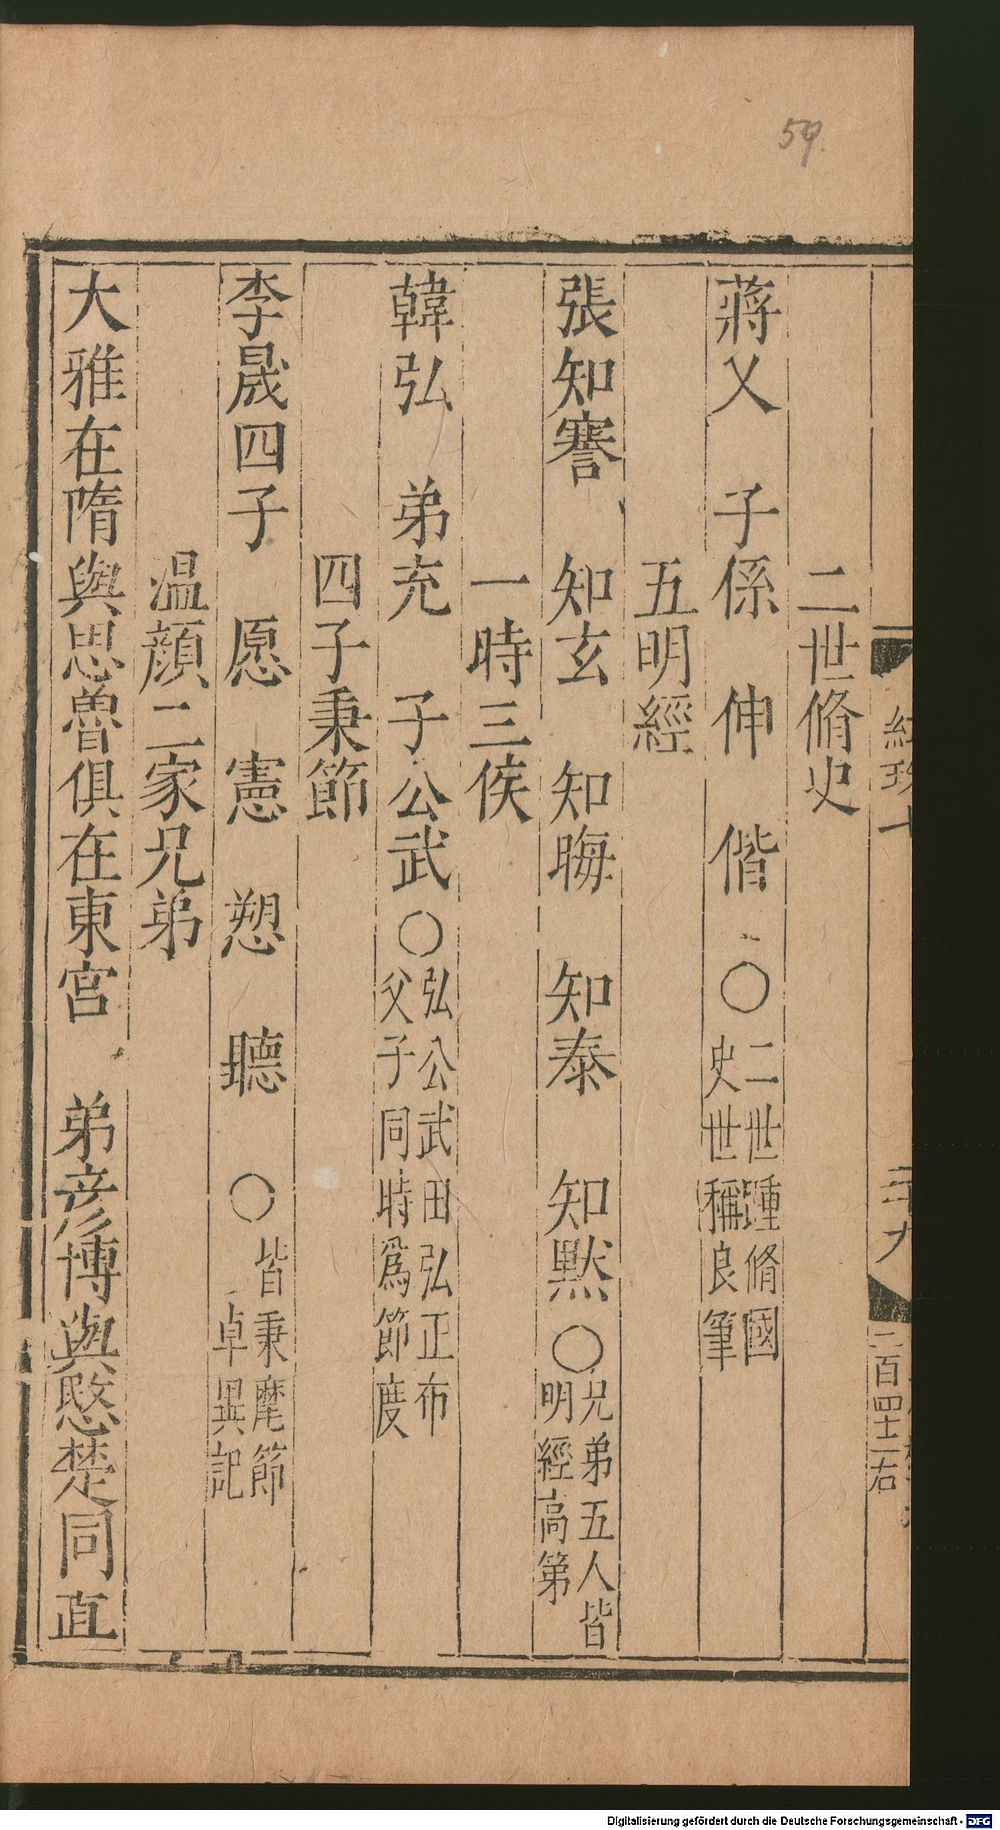 59.
二世脩史
蔣乂 子係 伸 偕 ○二世踵脩國
史世稱良筆
五明經
張知謇 知玄 知晦 知泰 知默○兄弟五人皆
明經高第
一時三侯
韓弘 弟充 子公武○弘公武田弘正布
父子同時爲節度
四子秉節
李晟四子 愿 憲 愬 聽 ○皆秉麾節
卓異記
温顔二家兄弟
大雅在隋與思魯俱在東宮 弟彦博與愍楚同直
二十九
二百四十一右
Digitalisierung gefördert durch die Deutsche Forschungsgemeinschaft - DFG